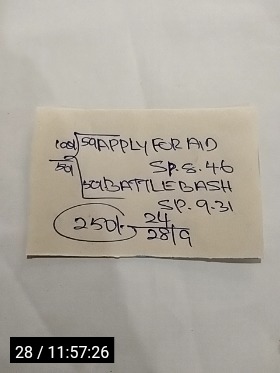 59 APPLY FOR AID
59 SP. 8. 46
59 BATTLE BASH
SP. 9.31
250/- 24
28/9
28 / 11:57:26